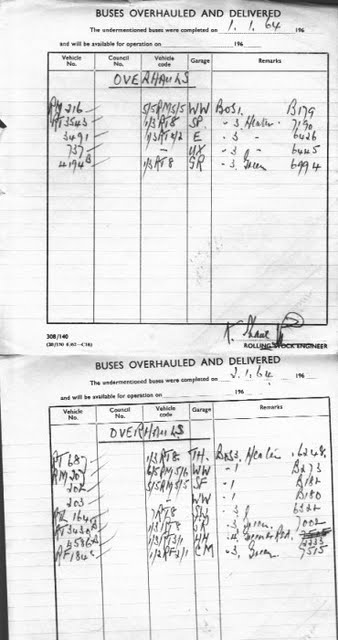 BUSES OVERHAULED AND DELIVERED
The undermentioned buses were completed on 1.1.64 196
and will be available for operation on 196
Vehicle No. Council No. Vehicle code Garage Remarks
OVERHAULS
RM 216 5/5RM5/5 WW BOS1. B179
RT3543 1/3RT8 SP - 3 Heater. 7190
3491 1/3RT4/2 E - 3 - 6426
737 - UX - 3 6445
4194 1/3RT8 GR - 3. Green 6994
308/140
ROLLING STOCK ENGINEER
BUSES OVERHAULED AND DELIVERED
The undermentioned buses were completed on 2.1.64 196
and will be available for operation on 196
Vehicle No. Council No. Vehicle code Garage Remarks
OVERHAULS
RT 687 1/3RT8 TH. BOS3. Heater. 6248.
RM 207 WW - 1 B273
202 5/5RM5/5 SF - 1 B182
203 - WW - 1 B180
164 7RT8 6322
RT3430 1/3RT8 GR - 3. Green. 7002
3586 1/3RT3/1 HH
1/2RF2/1 CM - 3. Green 9515